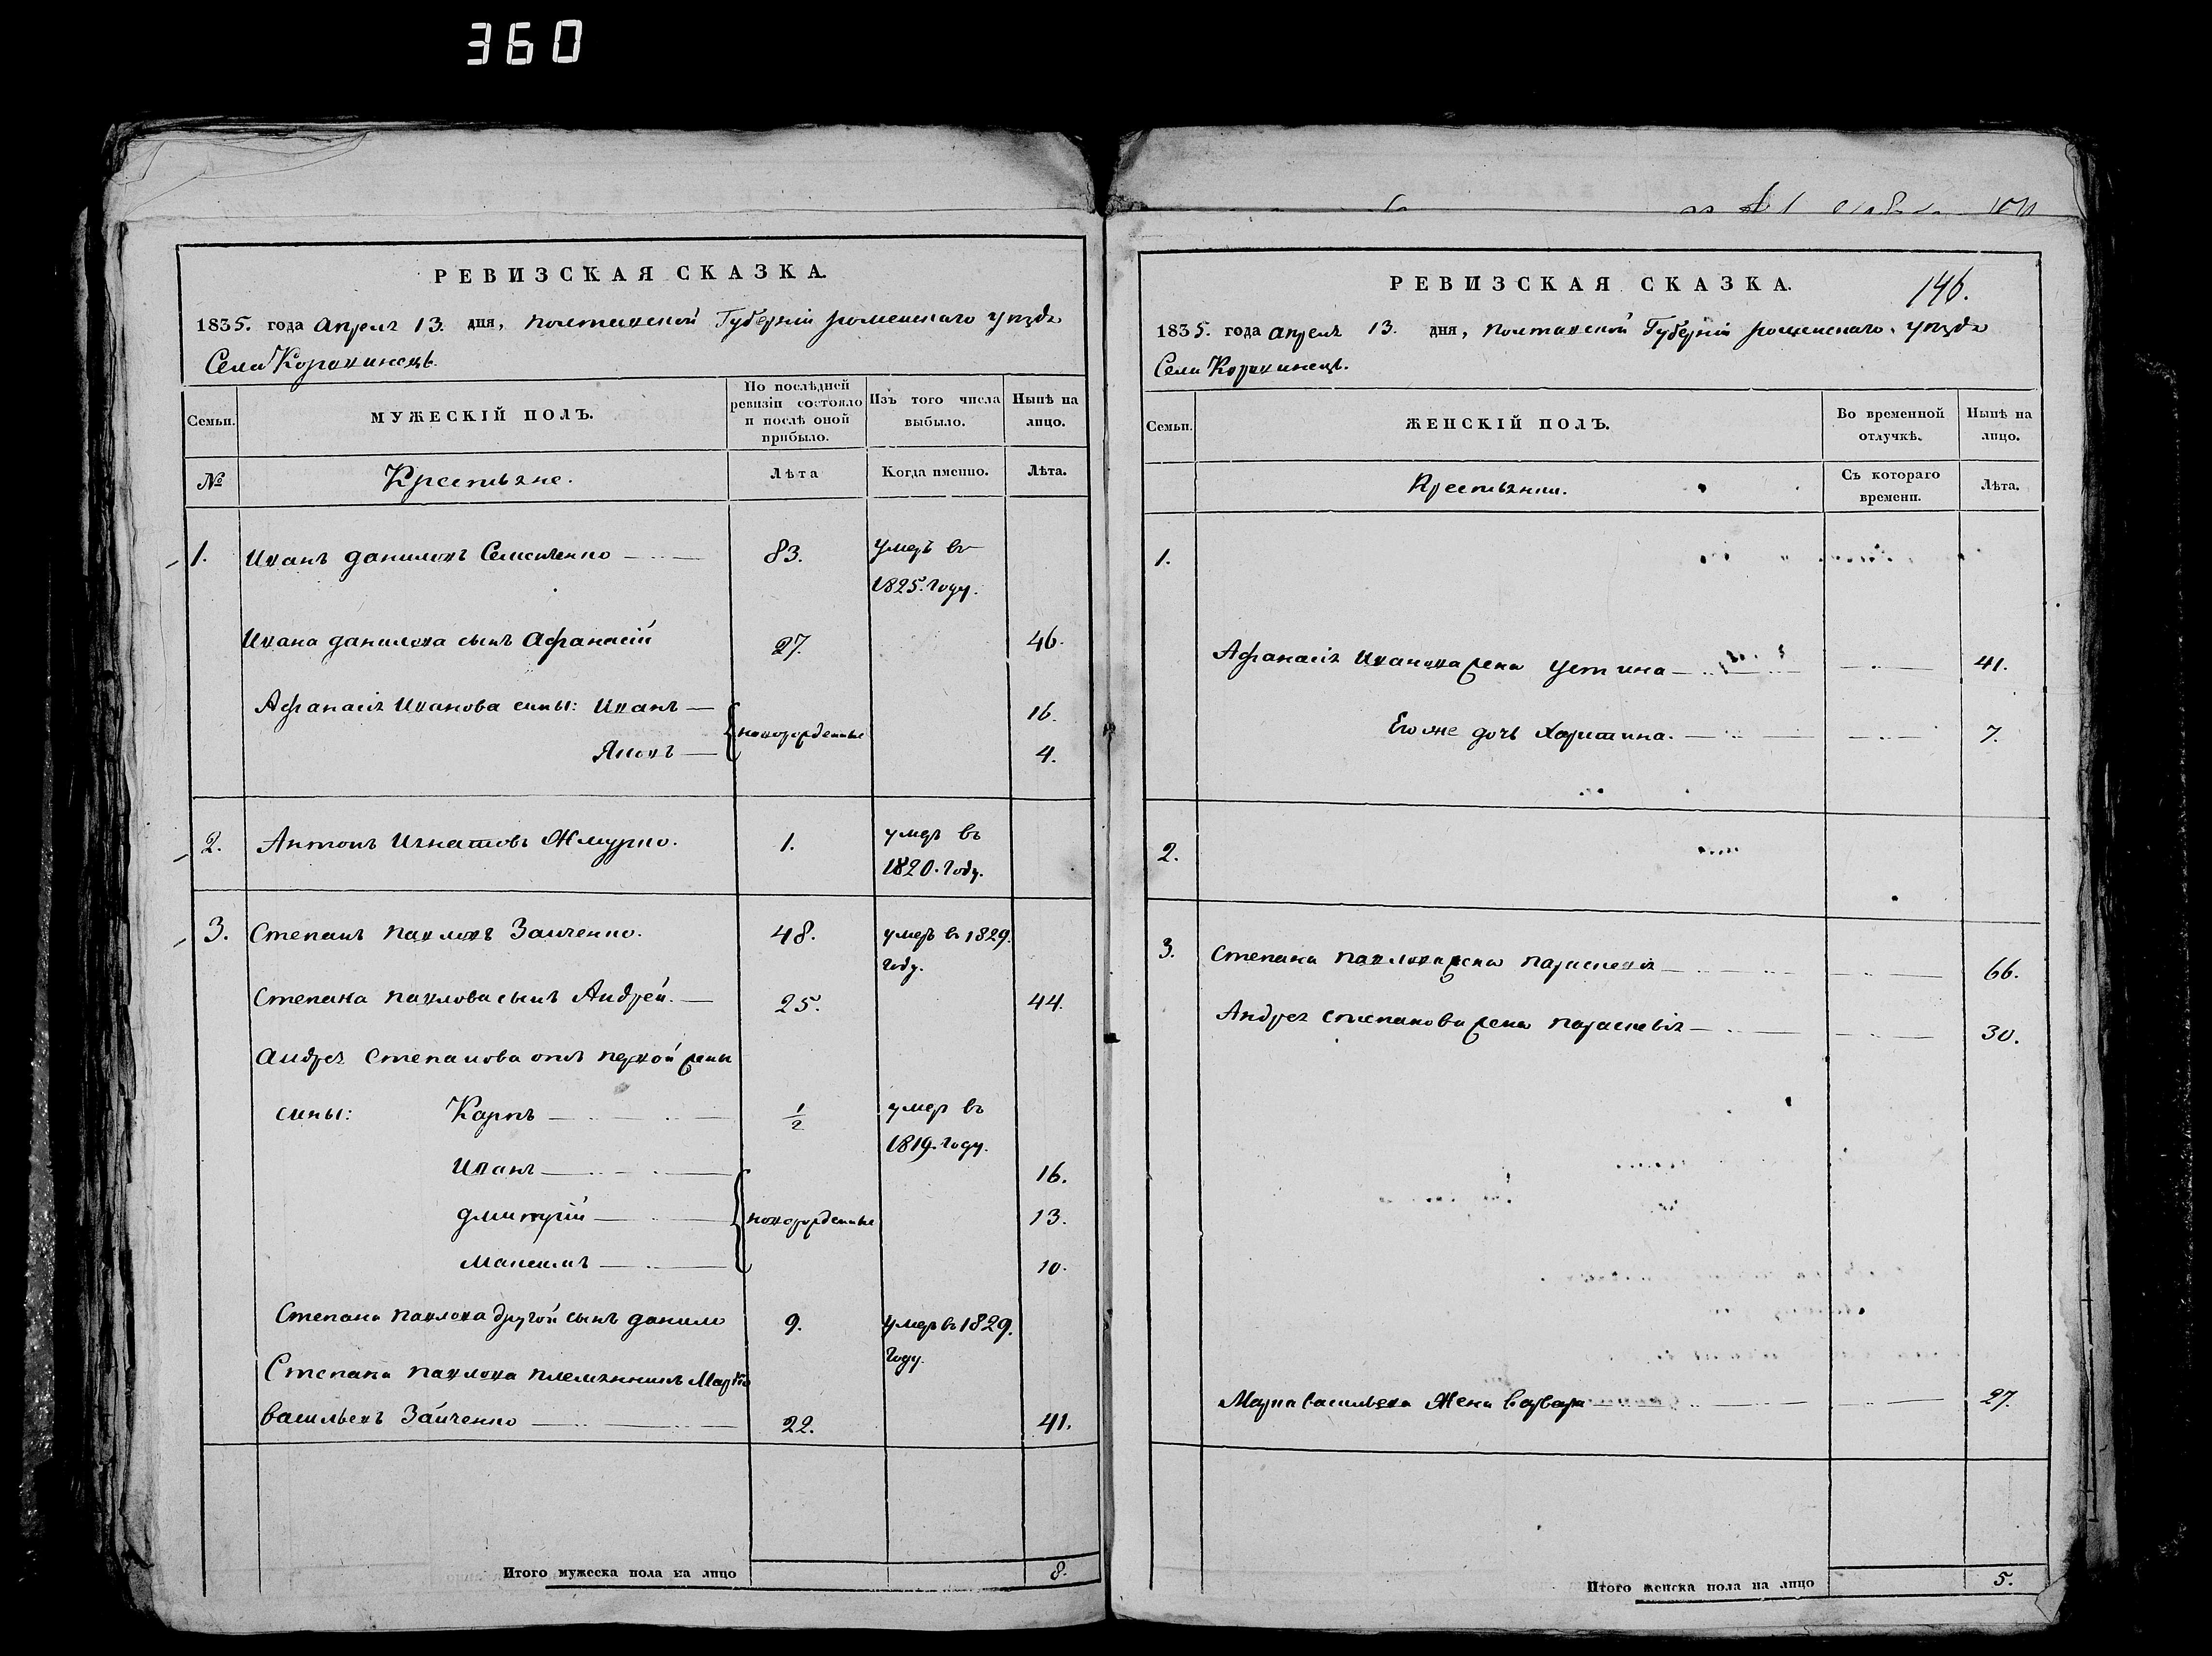 360
РЕВИЗСКАЯ СКАЗКА.
1835. года Апреля 13. дня, Полтавской Губернiи роменскаго уѣзда
Села Коровинецъ.
Семьи.
МУЖЕСКIЙ ПОЛЪ.
По послѣдней
ревизiи состояло
и послѣ оной
прибыло.
Изъ того числа
выбыло.
Нынѣ на
лицо.
№
Крестьяне.
Лѣта
Когда именно.
Лѣта.
1. Иванъ Даниловъ Семененко 83. умеръ въ
1825. году.
Ивана Данилова сынъ Афанасiй 27. 46.
Афанасiя Иванова сыны: Иванъ 16.
новорожденные
Яковъ 4.
2. Антонъ Игнатовъ Жмурко. 1. умеръ въ
1820. году.
3. Степанъ Павловъ Заиченко. 48. умеръ въ 1829.
году.
Степана Павлова сынъ Андрей. 25. 44.
Андрея Степанова отъ первой жены
сыны: Карпъ 1/2 умеръ въ
1819. году.
Иванъ 16.
Дмитрiй новорожденные 13.
Максимъ 10.
Степана Павлова другой сынъ Данило 9. умеръ въ 1829.
году.
Степана Павлова племянникъ Марко
Васильевъ Заиченко 22. 41.
Итого мужеска пола на лицо 8.
РЕВИЗСКАЯ СКАЗКА.
146.
1835. года апреля 13. дня, Полтавской Губернiи роменскаго уѣзда
Села Коровинецъ.
Семьи.
ЖЕНСКIЙ ПОЛЪ.
Во временной
отлучкѣ.
Нынѣ на
лицо.
Крестьянки.
Съ котораго
времени.
Лѣта.
1.
Афанасiя Иванова жена Устина 41.
Его же дочь Харитина. 7.
2.
3. Степана Павлова жена Параскевiя 66.
Андрея Степанова жена Параскевiя 30.
Марка Васильева Жена Варвара 27.
Итого женска пола на лицо 5.